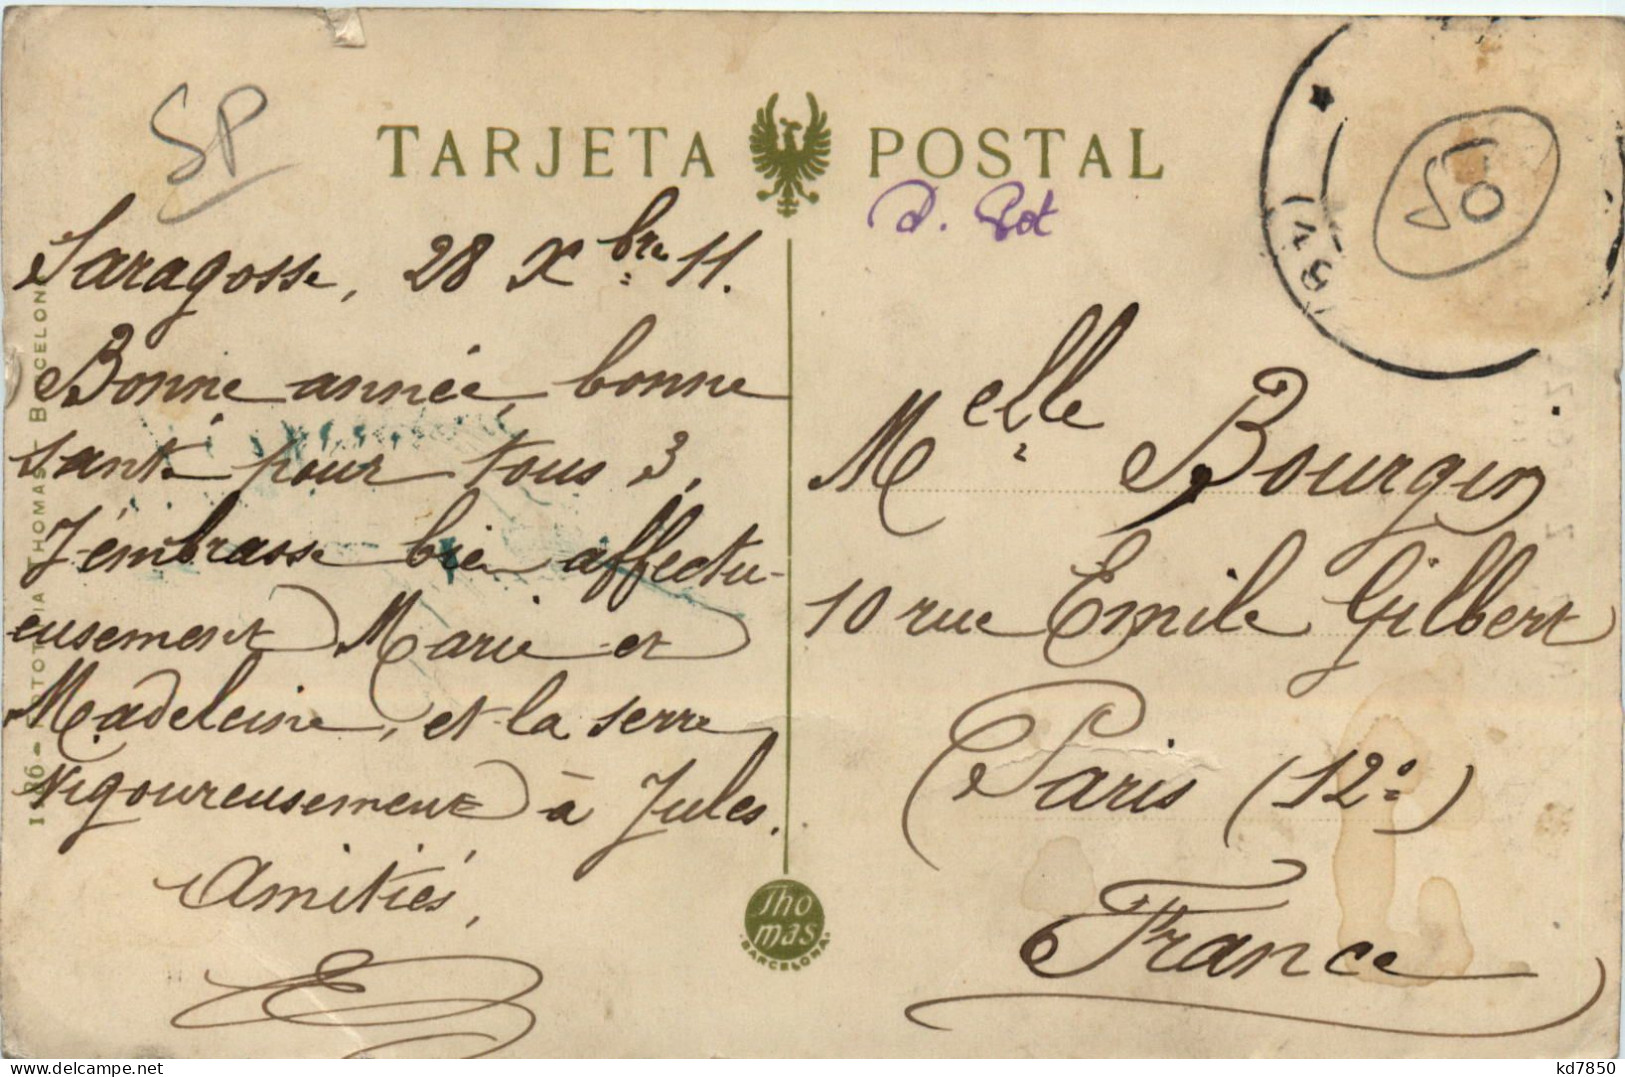 SP
TARJETA POSTAL
Saragosse, 28 Xbre 11.
Bonne année, bonne
santé pour tous 3,
J'embrasse bien affectu-
eusement Marie et
Madeleine, et la serre
vigoureusement à Jules.
Amitiés,
Melle Bourgin
10 rue Emile Gilbert
Paris (12e)
France
Thomas
BARCELONA
kd7850